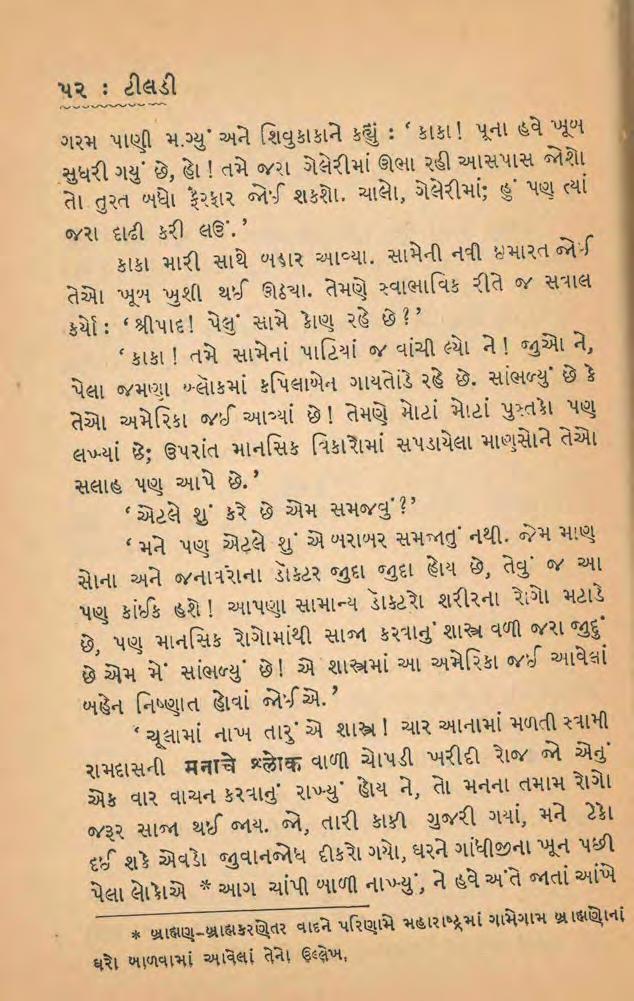 ૫૨ : ટીલડી
ગરમ પાણી મ.ગ્યું અને શિવુકાકાને કહ્યું : ‘ કાકા! પૂના હવે ખૂબ
સુધરી ગયું છે, હો ! તમે જરા ગેલેરીમાં ઊભા રહી આસપાસ જોશો
તો તુરત બધો ફેરફાર જોઈ શકશો. ચાલો, ગેલેરીમાં; હું પણ ત્યાં
જરા દાઢી કરી લઉં.’
કાકા મારી સાથે બહાર આવ્યા. સામેની નવી ઇમારત જોઈ
તેઓ ખૂબ ખુશી થઈ ઊઠ્યા. તેમણે સ્વાભાવિક રીતે જ સવાલ
કર્યો : ‘ શ્રીપાદ! પેલું સામે કોણ રહે છે ? ’
‘ કાકા ! તમે સામેનાં પાટિયાં જ વાંચી લ્યો ને ! જુઓ ને,
પેલા જમણા બ્લૉકમાં કપિલાબેન ગાયતોંડે રહે છે. સાંભળ્યું છે કે
તેઓ અમેરિકા જઈ આવ્યાં છે! તેમણે મોટાં મોટાં પુસ્તકો પણ
લખ્યાં છે; ઉપરાંત માનસિક વિકારોમાં સપડાયેલા માણસોને તેઓ
સલાહ પણ આપે છે.’
‘ એટલે શું કરે છે એમ સમજવું?’
‘ મને પણ એટલે શું એ બરાબર સમજાતું નથી. જેમ માણ
સોના અને જનાવરોના ડૉક્ટર જુદા જુદા હોય છે, તેવું જ આ
પણ કાંઈક હશે ! આપણા સામાન્ય ડૉક્ટરો શરીરના રોગો મટાડે
છે, પણ માનસિક રોગોમાંથી સાજા કરવાનું શાસ્ત્ર વળી જરા જુદું
છે એમ મેં સાંભળ્યું છે! એ શાસ્ત્રમાં આ અમેરિકા જઈ આવેલાં
બહેન નિષ્ણાત હોવાં જોઈએ.’
‘ ચૂલામાં નાખ તારું એ શાસ્ત્ર ! ચાર આનામાં મળતી સ્વામી
રામદાસની મનાચે શ્લોક વાળી ચોપડી ખરીદી રોજ જો એનું
એક વાર વાચન કરવાનું રાખ્યું હોય ને, તો મનના તમામ રોગો
જરૂર સાજા થઈ જાય. જો, તારી કાકી ગુજરી ગયાં, મને ટેકો
દઈ શકે એવડો જુવાનજોધ દીકરો ગયો, ઘરને ગાંધીજીના ખૂન પછી
પેલા લોકોએ * આગ ચાંપી બાળી નાખ્યું, ને હવે અંતે જાતાં આંખે
* બ્રાહ્મણ-બ્રાહ્મકરણેતર વાદને પરિણામે મહારાષ્ટ્રમાં ગામેગામ બ્રાહ્મણોનાં
ઘરો બાળવામાં આવેલાં તેનો ઉલ્લેખ.